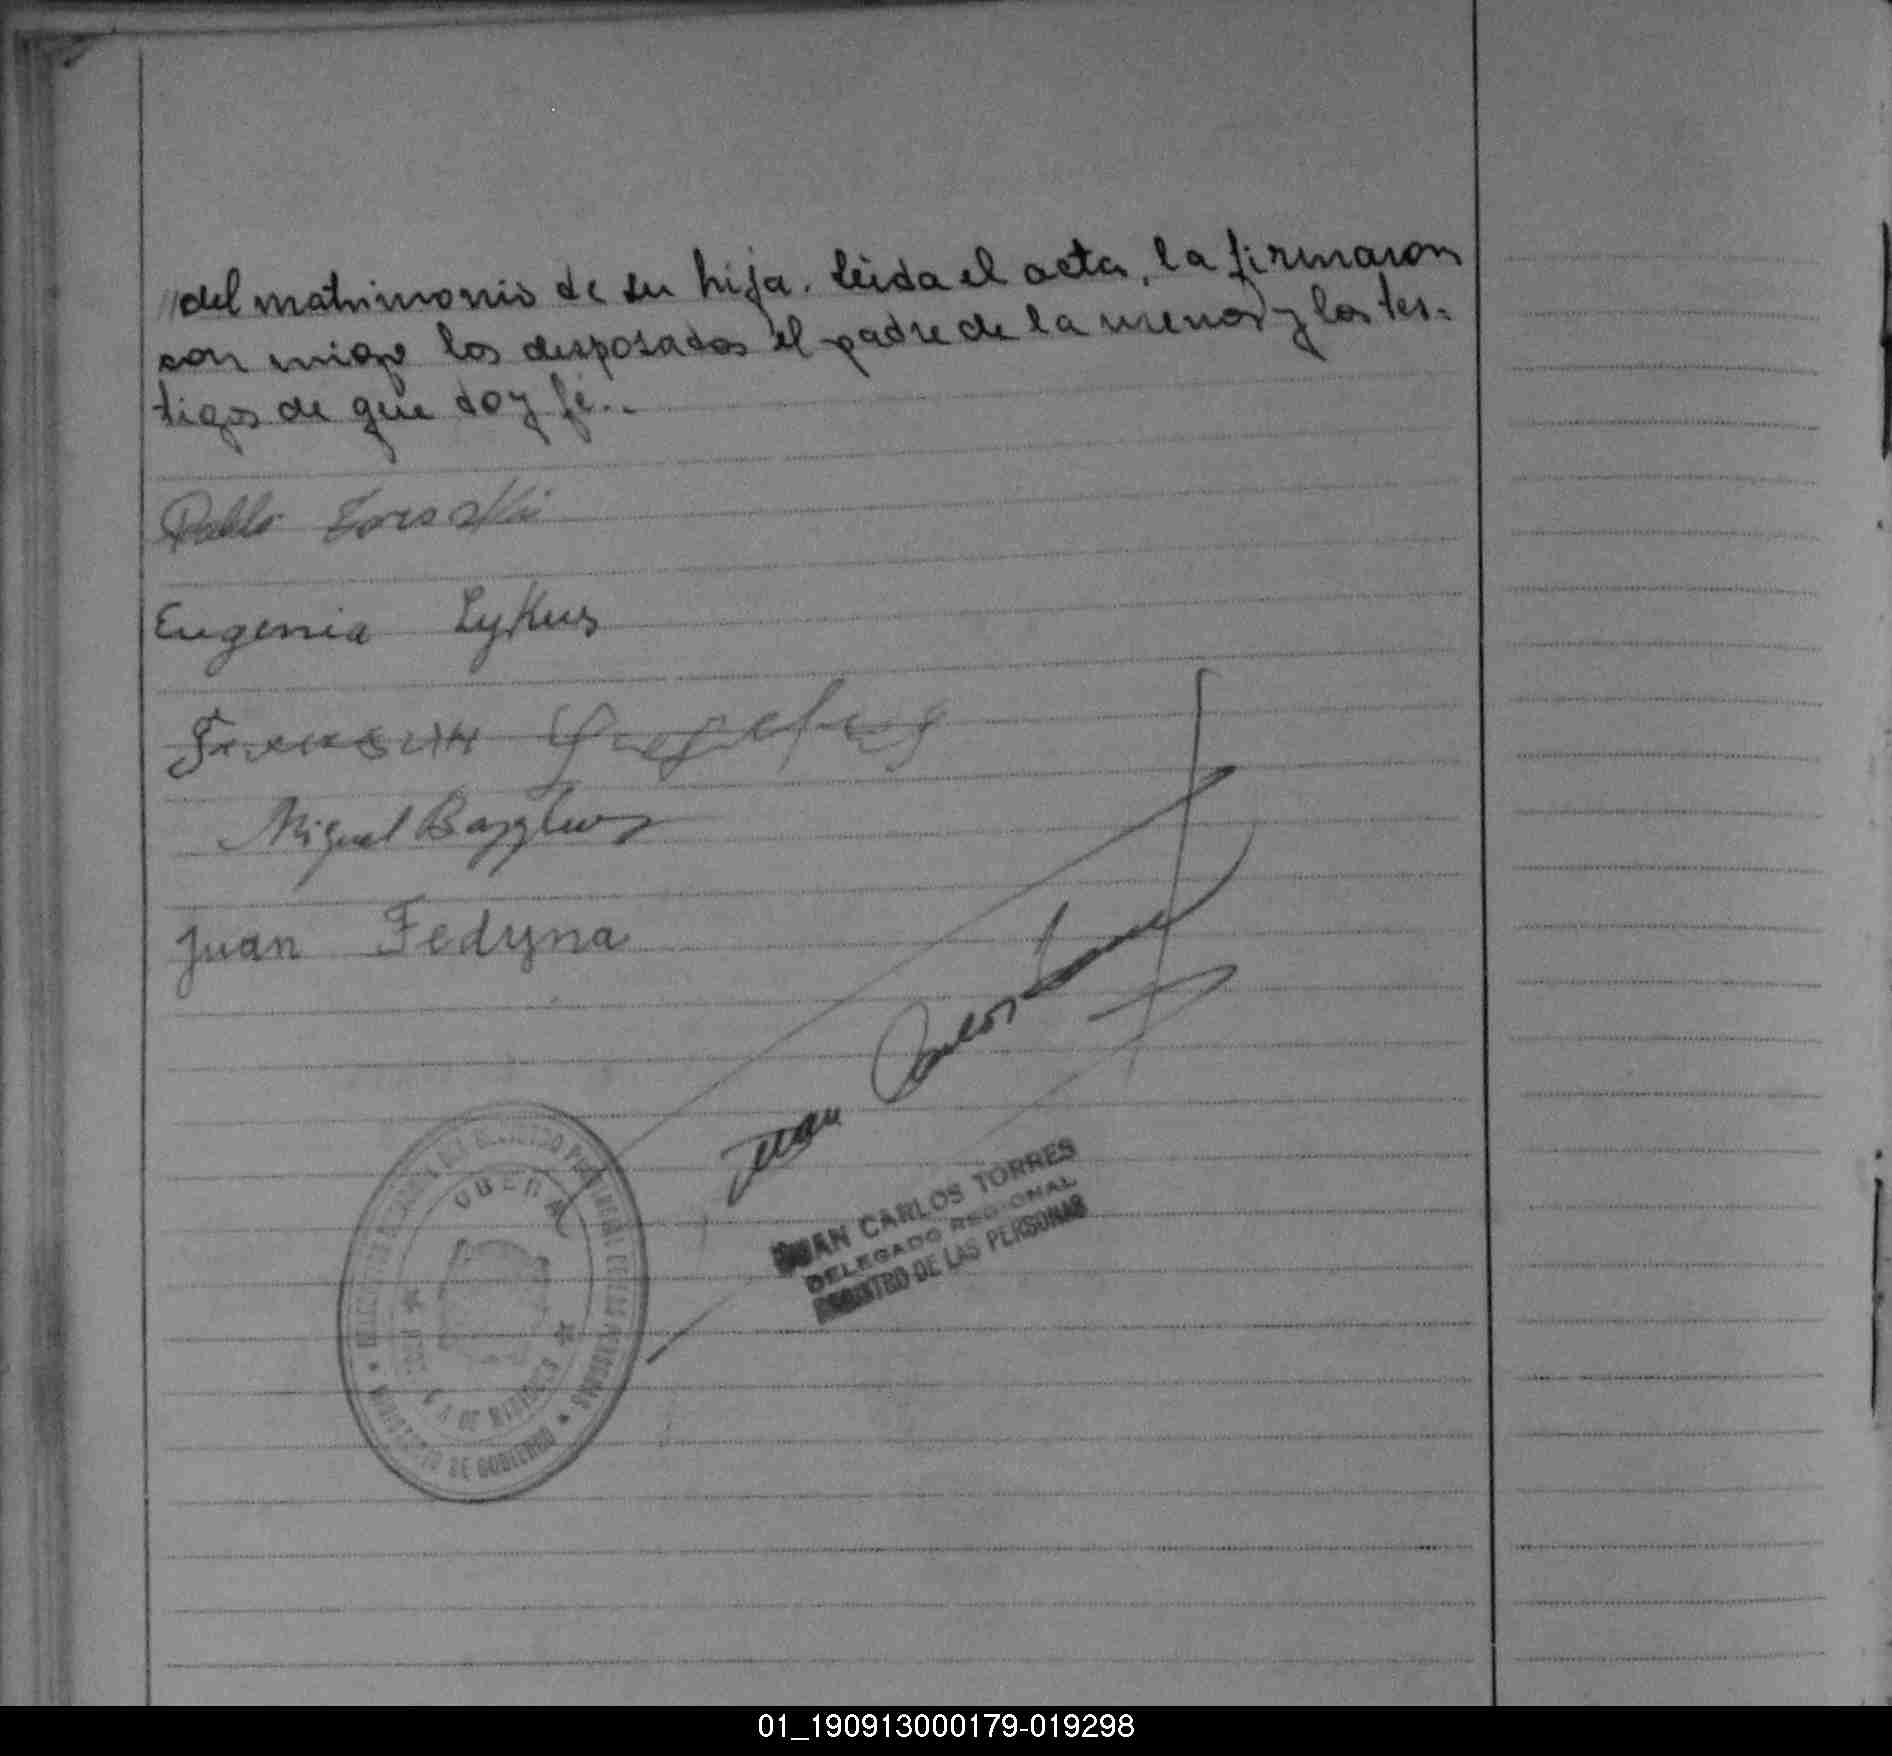 //del matrimonio de su hija. Leida el acta, la firmaron
con migo los desposados el padre de la menor y los tes=
tigos de que doy fé..
Pablo
Eugenia Lykus
Miguel
Juan Fedyna
Juan Carlos
JUAN CARLOS TORRES
DELEGADO REGIONAL
REGISTRO DE LAS PERSONAS
OBERA
MINISTERIO DE GOBIERNO
DE MISIONES
01_190913000179-019298